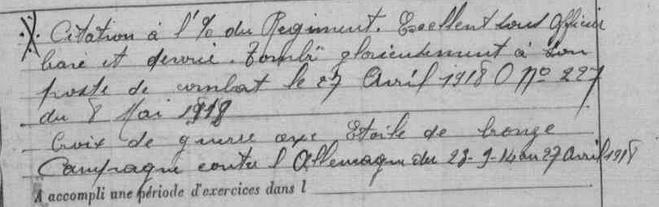 X. Citation à l'% du Regiment. Excellent sous Officier
brave et devoué. Tombé glorieusement à son
poste de combat le 27 Avril 1918 O No 227
du 8 Mai 1918
Croix de guerre avec Etoile de bronze
Campagne contre l'Allemagne du 23-9-14 au 27 avril 1918
A accompli une période d'exercices dans l